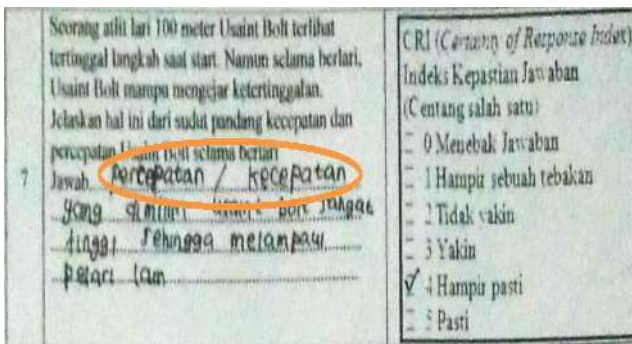 Seorang atlit lari 100 meter Usaint Bolt terlihat
tertinggal langkah saat start. Namun selama berlari,
Usaint Bolt mampu mengejar ketertinggalan.
Jelaskan hal ini dari sudut pandang kecepatan dan
percepatan Usaint Bolt selama berlari
7 Jawab. percepatan / kecepatan
yang dimiliki usaint bolt sangat
tinggi sehingga melampaui
pelari lain
CRI (Certainty of Response Index)
Indeks Kepastian Jawaban
(Centang salah satu)
0 Menebak Jawaban
1 Hampir sebuah tebakan
2 Tidak yakin
3 Yakin
✓ 4 Hampir pasti
5 Pasti